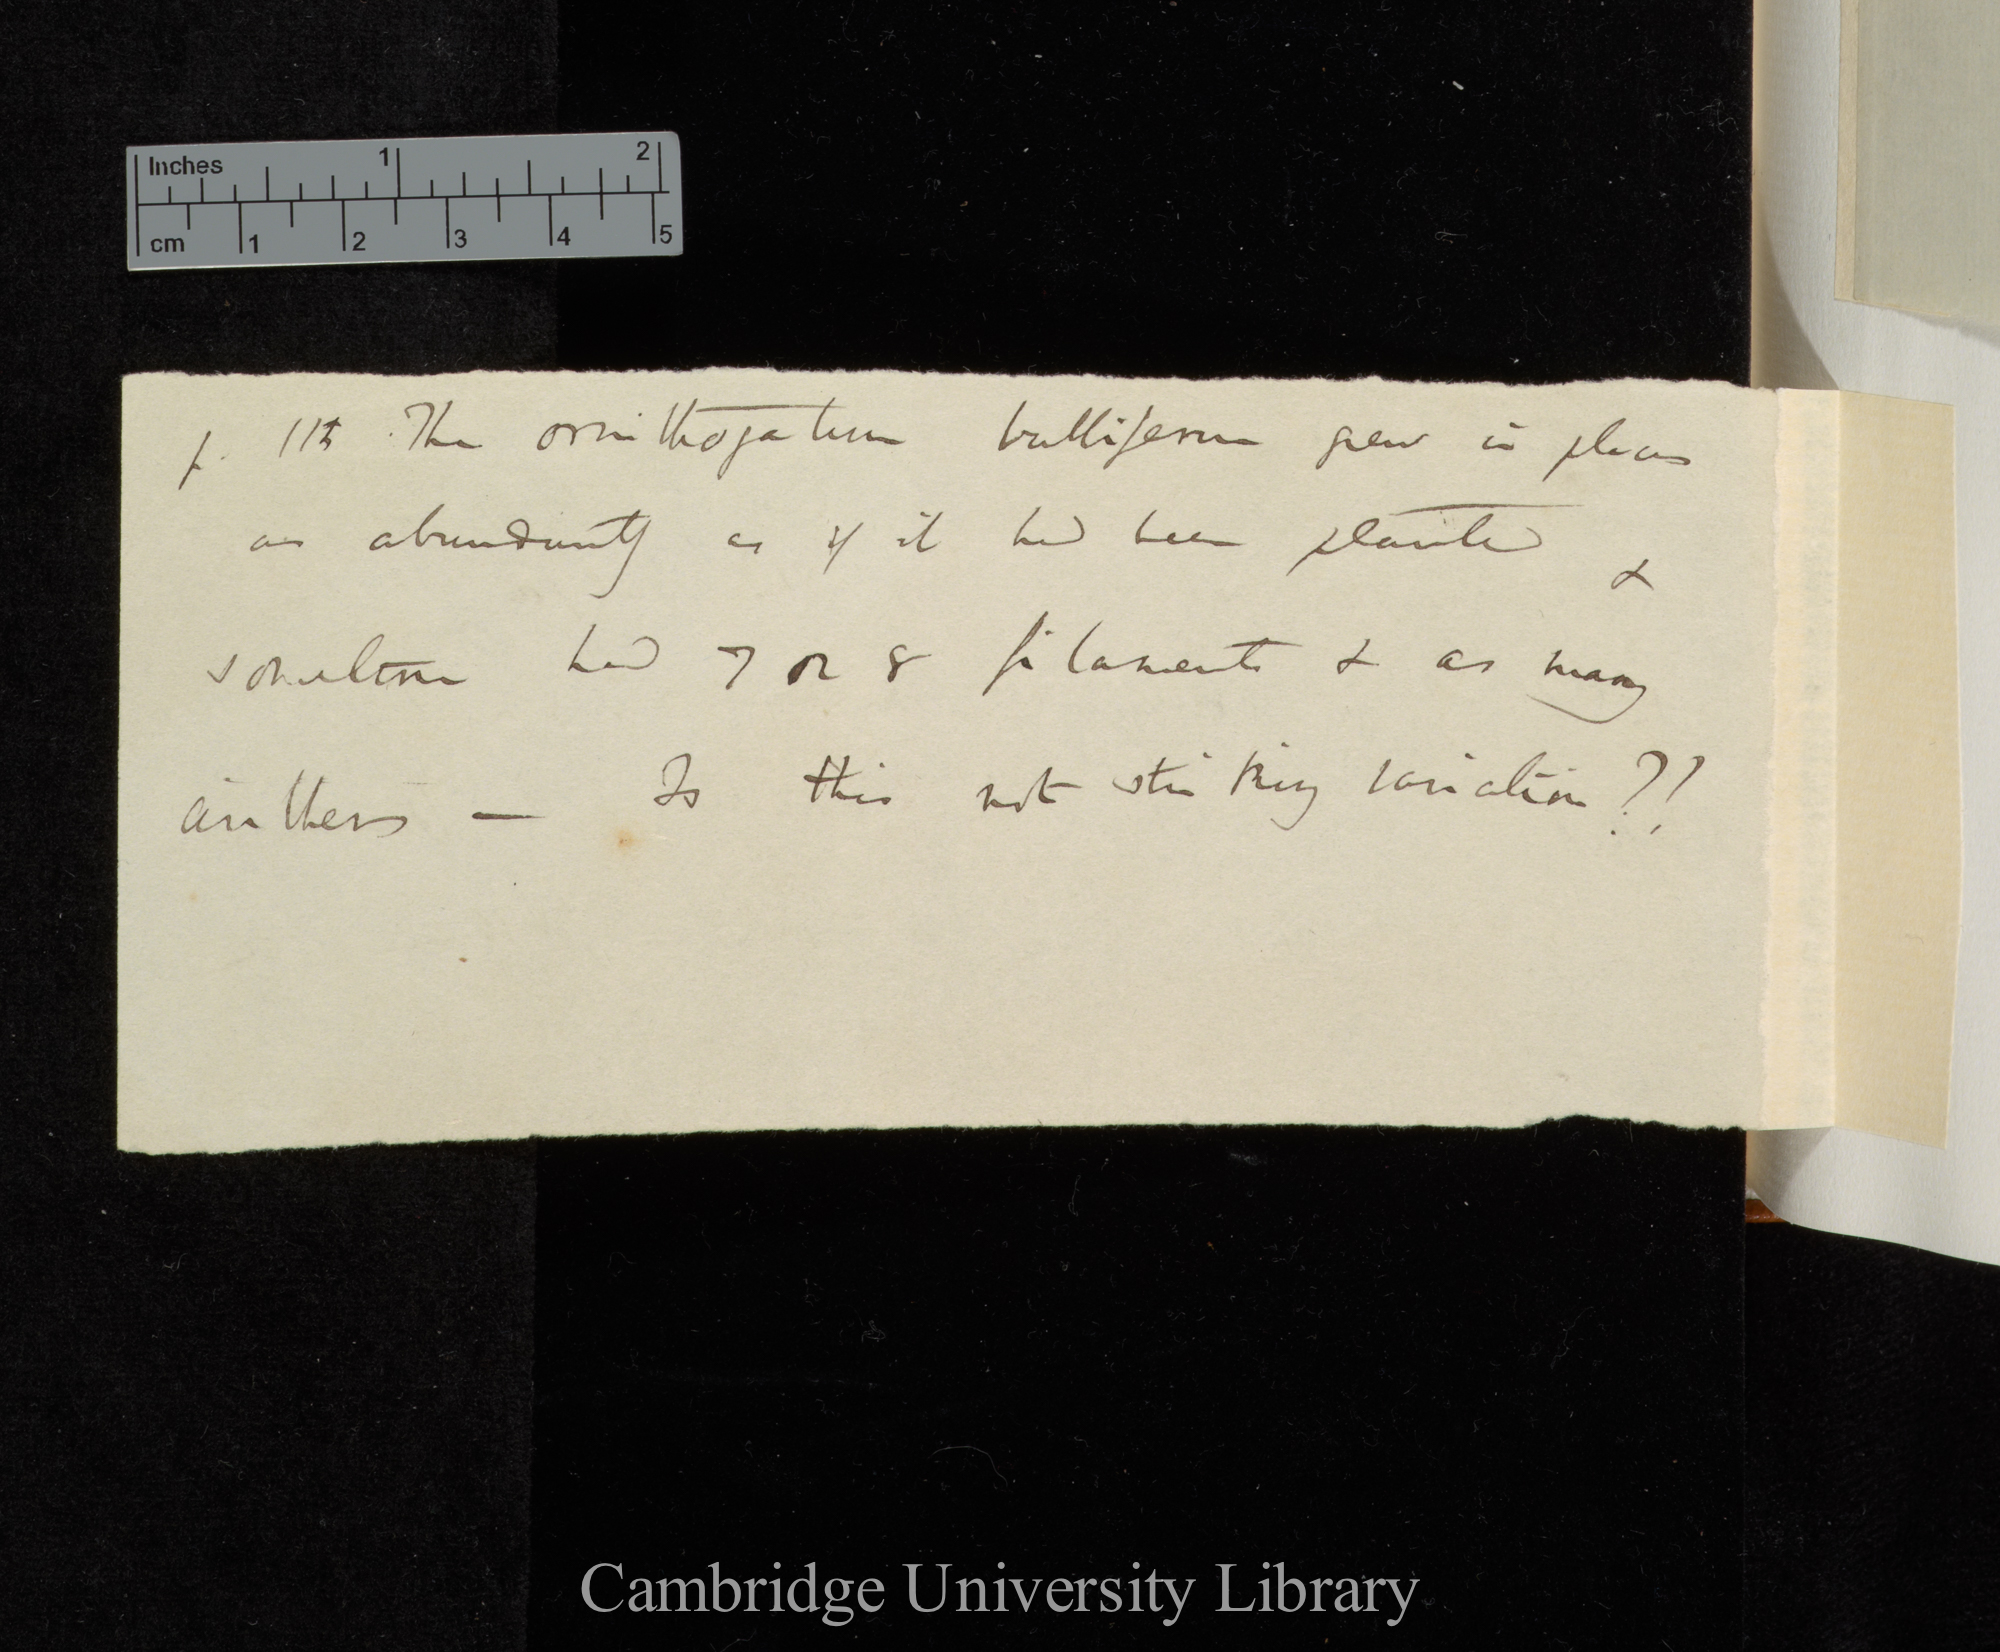 Inches 1 2
cm 1 2 3 4 5
p. 115 The ornithogalum bulbiferum grew in places
as abundantly as if it had been planted &
sometimes had 7 or 8 filaments & as many
anthers — Is this not striking variation??
Cambridge University Library